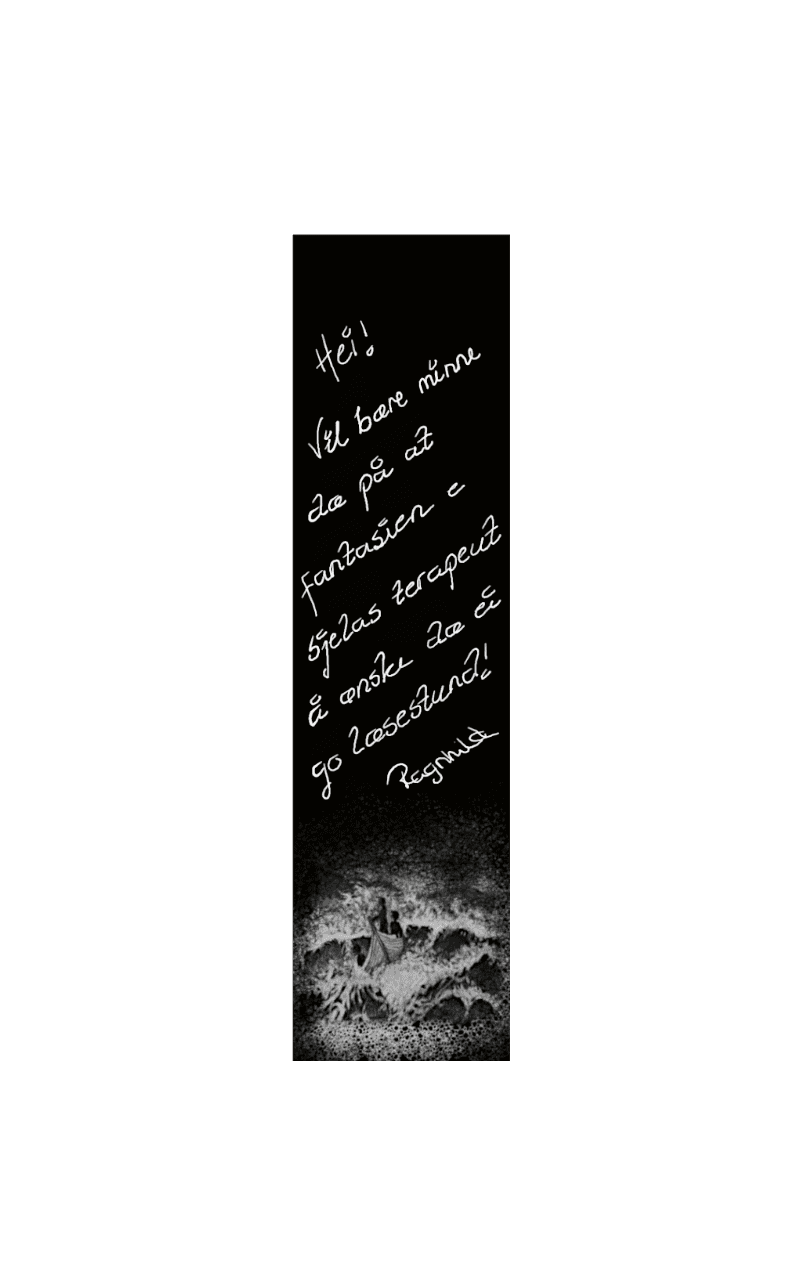 Hei!
Vil bære minne
dæ på at
fantasien e
sjelas terapeut
å ønske dæ ei
go læsestund!
Ragnhild